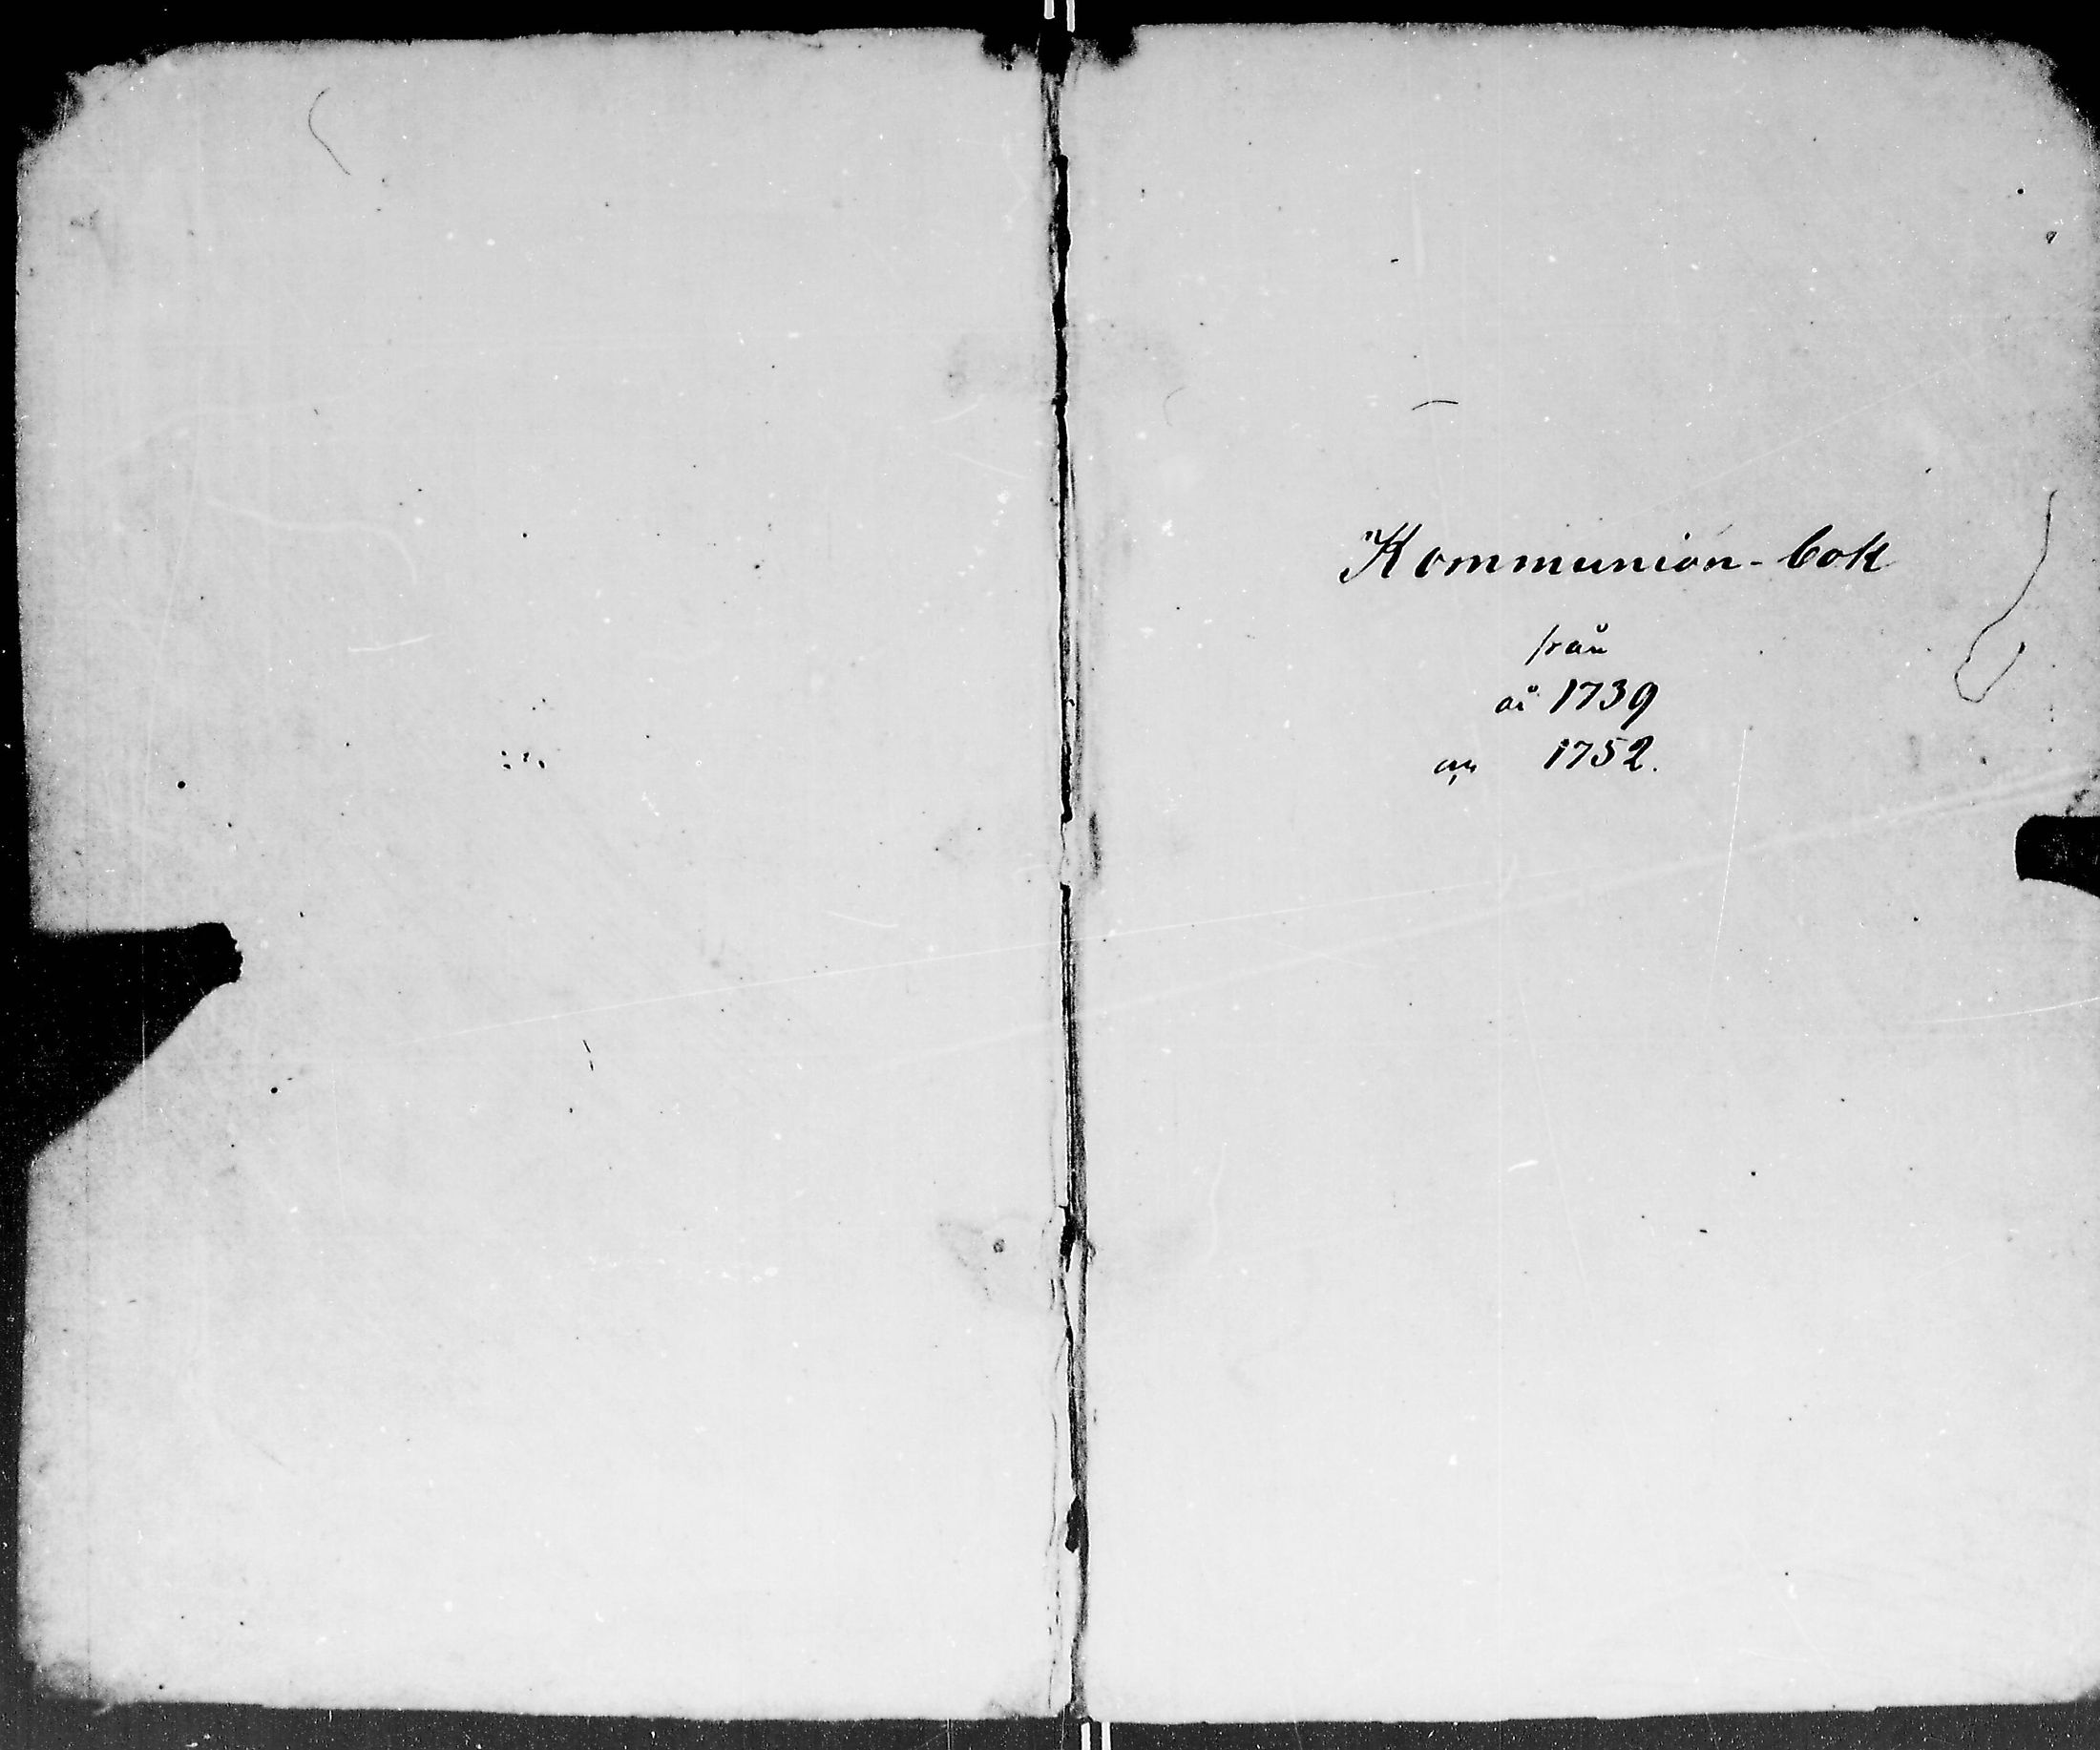 Kommunion-bok
från
år 1739
1752.